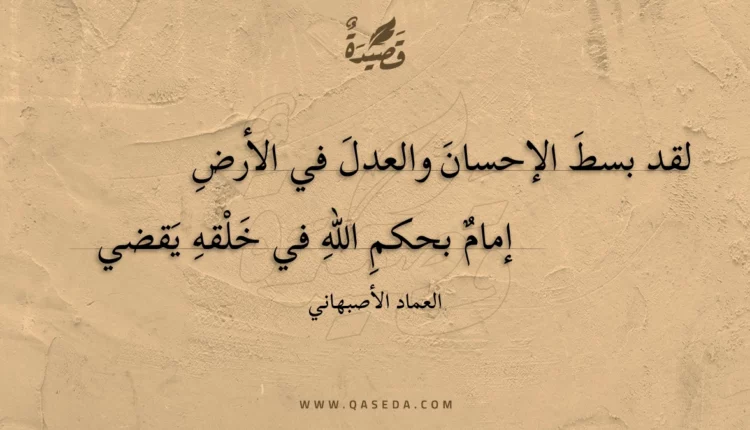 قَصِيدَةٌ
لقد بسطَ الإحسانَ والعدلَ في الأرضِ
إمامٌ بحكمِ اللهِ في خَلْقهِ يَقضي
العماد الأصبهاني
WWW.QASEDA.COM